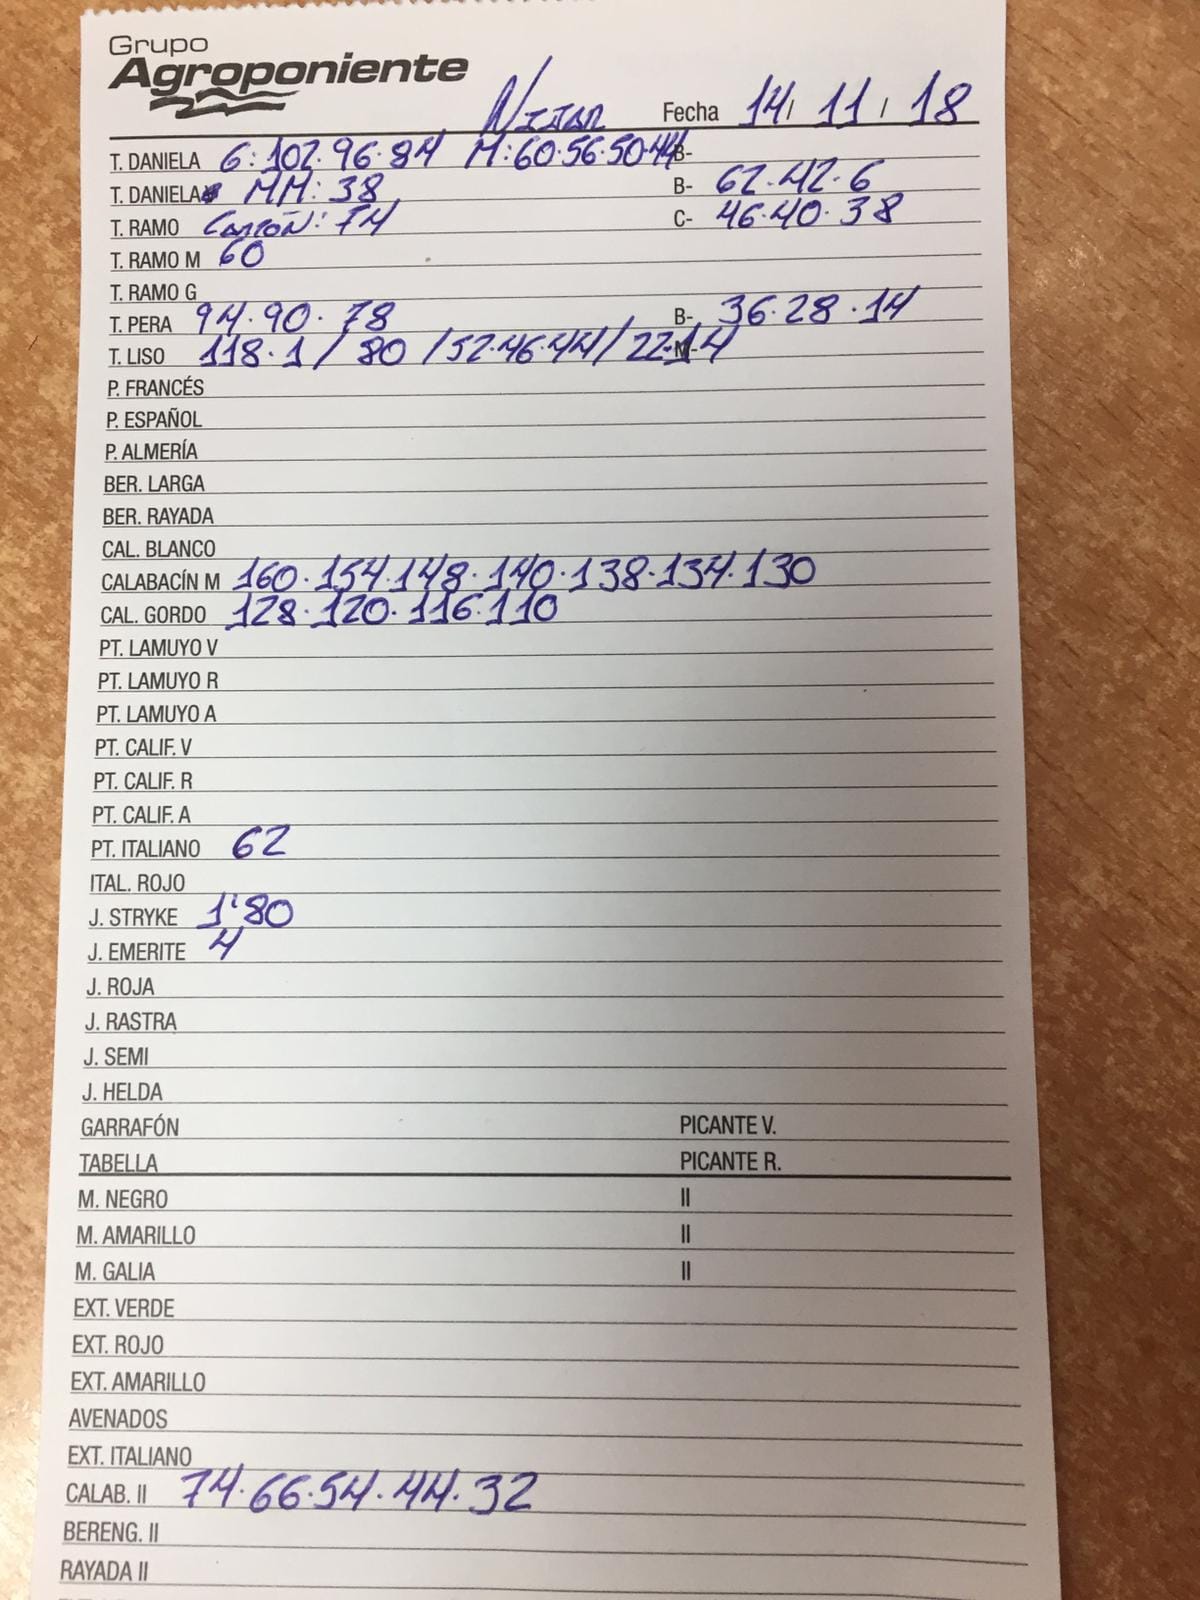 Grupo
Agroponiente
Nijar Fecha 14/ 11 / 18
T. DANIELA G: 102·96·84 M: 60·56·50·44 B-
T. DANIELA MM: 38 B- 62·42·6
T. RAMO Cartón: 74 C- 46·40·38
T. RAMO M 60
T. RAMO G
T. PERA 94·90·78 B- 36·28·14
T. LISO 118·1 / 80 /52·46·44/ 22·14 M-
P. FRANCÉS
P. ESPAÑOL
P. ALMERÍA
BER. LARGA
BER. RAYADA
CAL. BLANCO
CALABACÍN M 160·154·148·140·138·134·130
CAL. GORDO 128·120·116·110
PT. LAMUYO V
PT. LAMUYO R
PT. LAMUYO A
PT. CALIF. V
PT. CALIF. R
PT. CALIF. A
PT. ITALIANO 62
ITAL. ROJO
J. STRYKE 1'80
J. EMERITE 4
J. ROJA
J. RASTRA
J. SEMI
J. HELDA
GARRAFÓN PICANTE V.
TABELLA PICANTE R.
M. NEGRO II
M. AMARILLO II
M. GALIA II
EXT. VERDE
EXT. ROJO
EXT. AMARILLO
AVENADOS
EXT. ITALIANO
CALAB. II 74·66·54·44·32
BERENG. II
RAYADA II